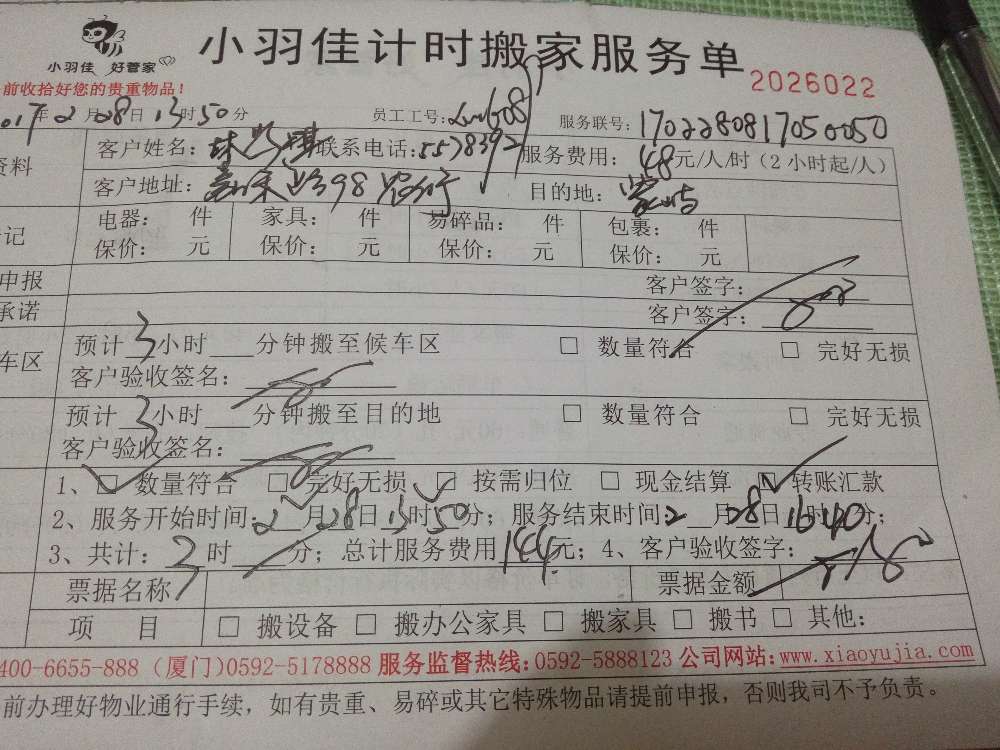 小羽佳 好管家
小羽佳计时搬家服务单
前收拾好您的贵重物品!
2026022
017年2月28日13时50分 员工工号: 服务联号:1702280817050050
资料
客户姓名: 联系电话:5578392 服务费用:48元/人/时(2小时起/人)
客户地址: 98 农行 目的地:
登记
电器: 件 家具: 件 易碎品: 件 包裹: 件
保价: 元 保价: 元 保价: 元 保价: 元
申报 客户签字:
承诺 客户签字:
车区
预计3小时 分钟搬至候车区 □ 数量符合 □ 完好无损
客户验收签名:
预计3小时 分钟搬至目的地 □ 数量符合 □ 完好无损
客户验收签名:
1、□ 数量符合 □ 完好无损 □ 按需归位 □ 现金结算 □ 转账汇款
2、服务开始时间:2月28日13时50分;服务结束时间:2月28日16时40分;
3、共计:3时 分;总计服务费用144元;4、客户验收签字:
票据名称 票据金额
项 目 □ 搬设备 □ 搬办公家具 □ 搬家具 □ 搬书 □ 其他:
400-6655-888 (厦门)0592-5178888 服务监督热线:0592-5888123 公司网站:www.xiaoyujia.com
前办理好物业通行手续,如有贵重、易碎或其它特殊物品请提前申报,否则我司不予负责。